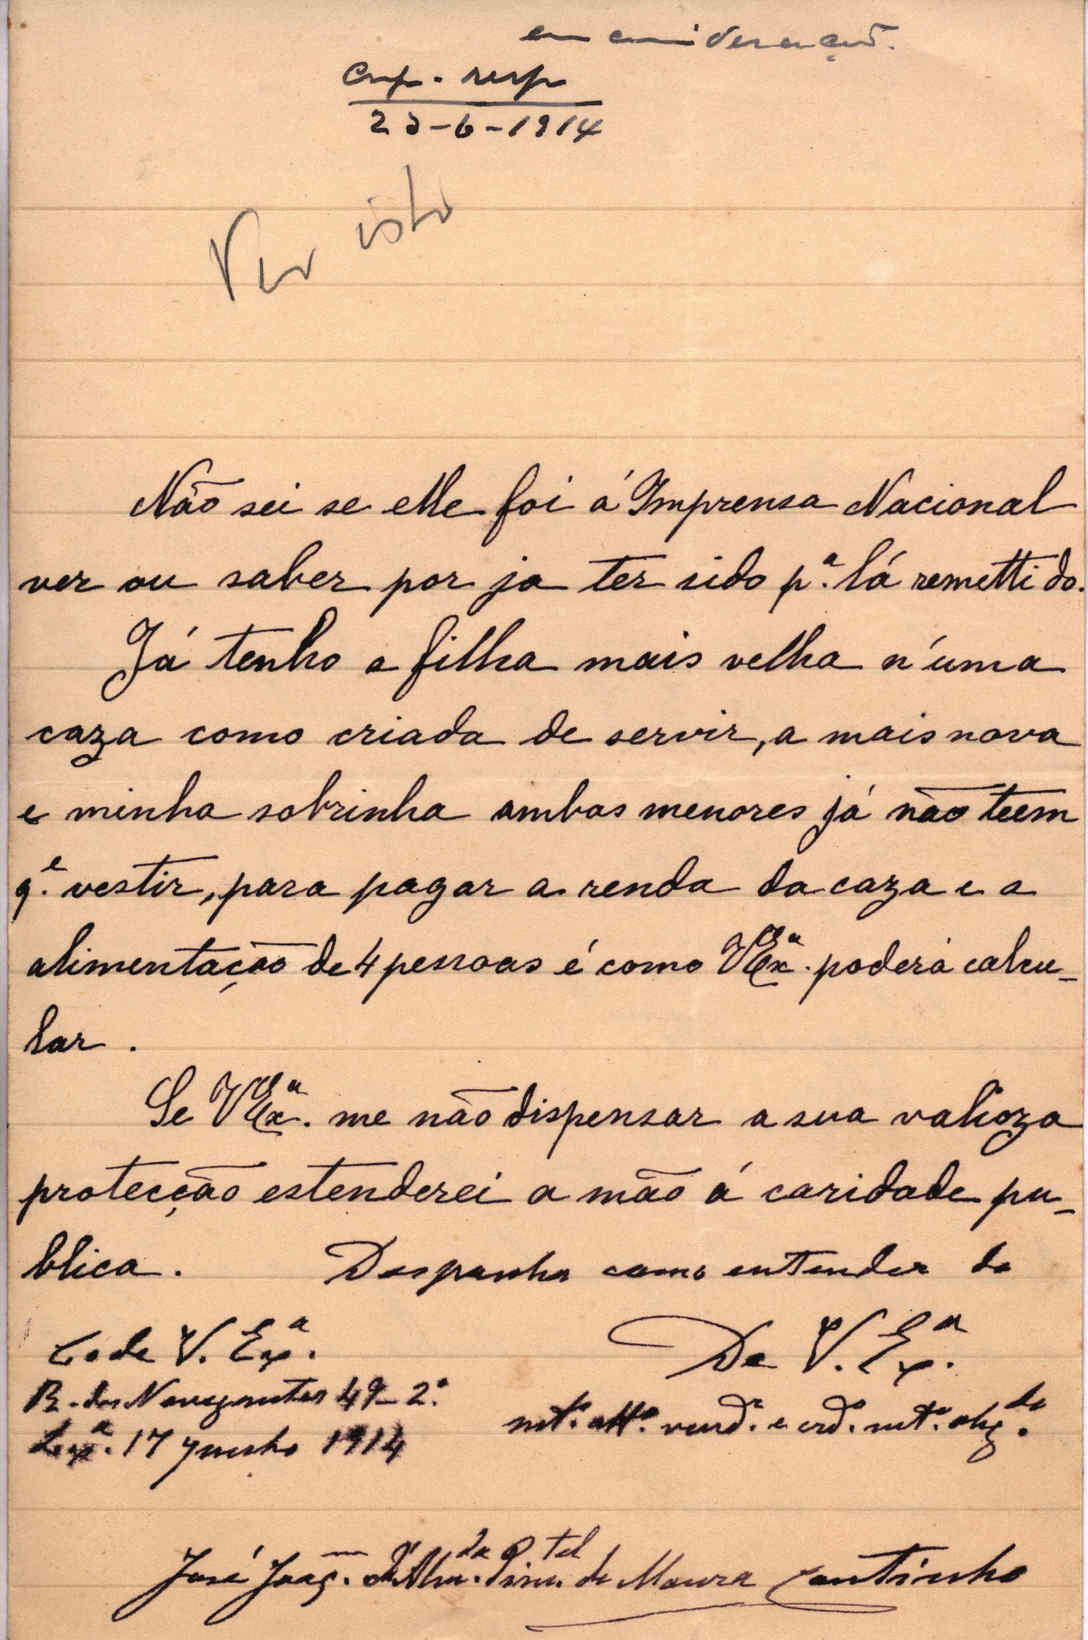 em consideração.
resp
23-6-1914
Ver isto
Não sei se elle foi á Imprensa Nacional
ver ou saber por ja ter sido pª. lá remettido.
Já tenho a filha mais velha n'uma
caza como criada de servir, a mais nova
e minha sobrinha ambas menores já não teem
q.e vestir, para pagar a renda da caza e a
alimentação de 4 pessoas é como V Exª. poderá calcu-
lar.
Se V Exª. me não dispensar a sua valioza
protecção estenderei a mão á caridade pu-
blica. Desponha como entender do
De V. Exª.
C. de V. Exª.
R. dos Navegantes 49-2º.
mtº. attº. venrº. e crdº. mtº. obgdo.
Lxª. 17 Junho 1914
José Joaq. d'Alm.da Pim.tel de Moura Coutinho